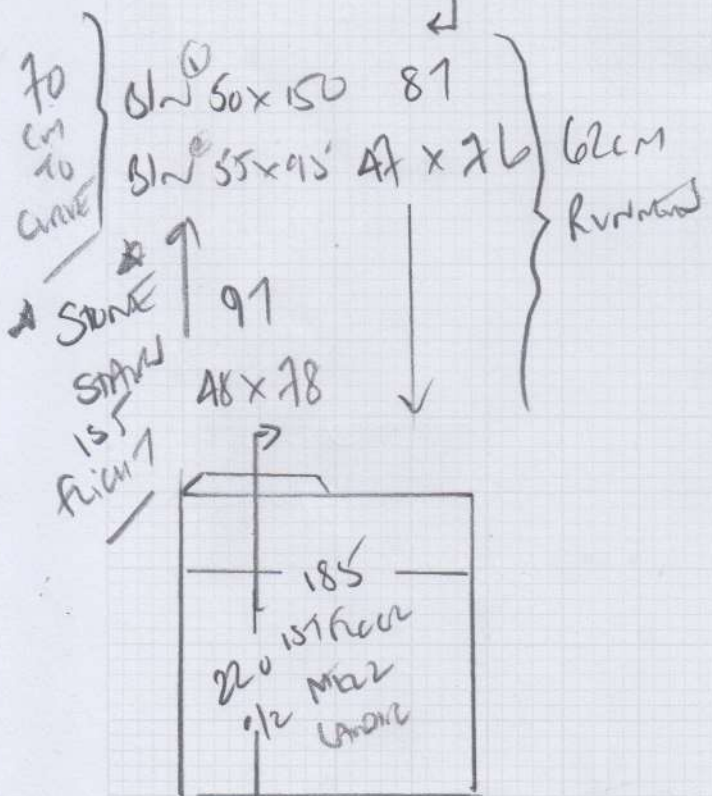 70
CM
TO
CURVE
BIN ① 50 x 150 81
BIN 55 x 95 47 x 76
62CM
RUNNER
STONE
STAIRS
1ST
FLIGHT
91
48 x 78
185
1ST FLOOR
220
1/2
LANDING